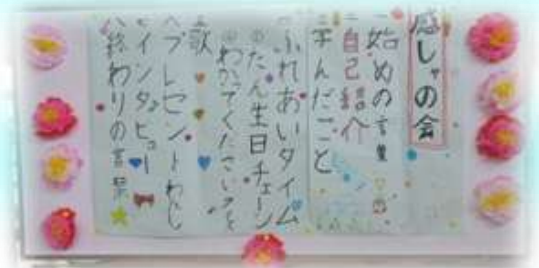 感しゃの会
一始めの言葉
二自己紹介
三学んだこと
四ふれあいタイム
たん生日チェーン
歌
プレゼントわたし
インタビュー
八終わりの言葉